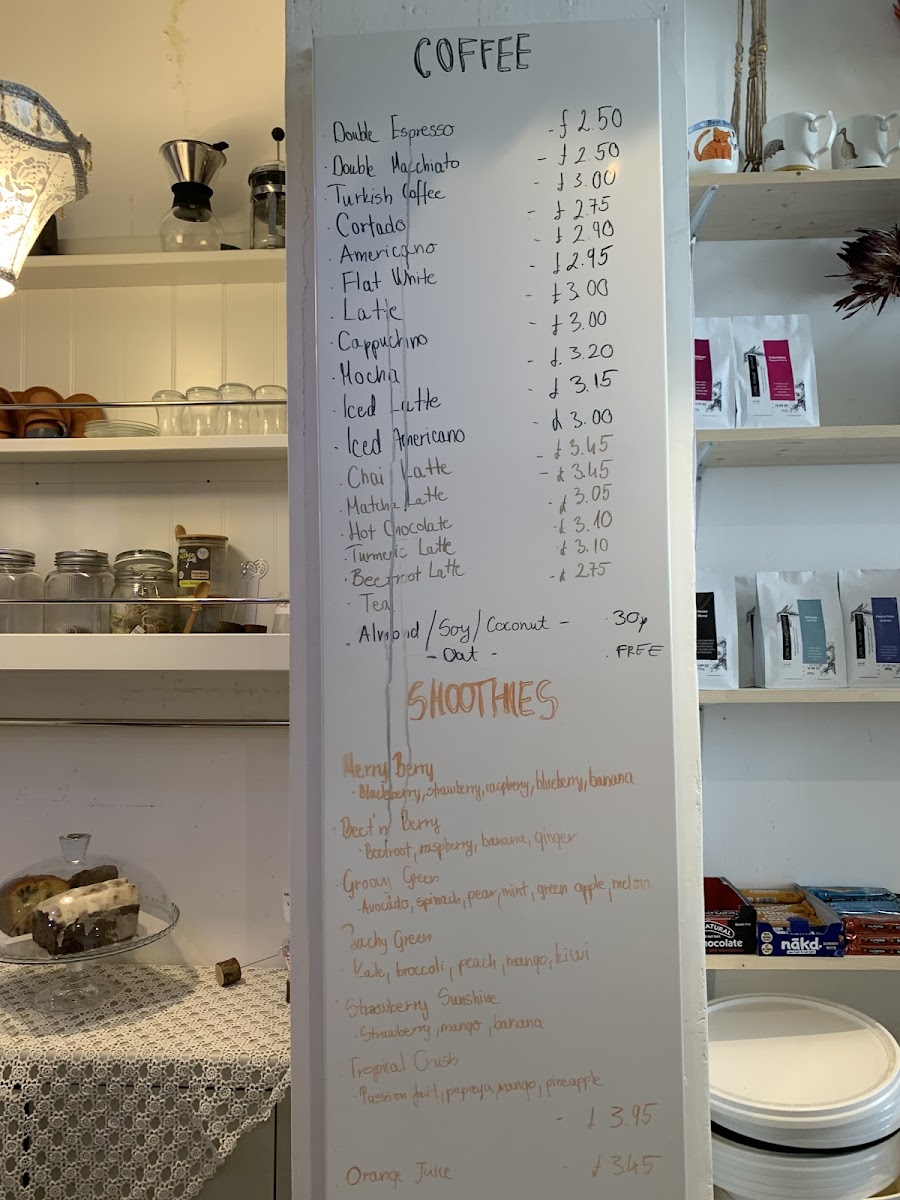 COFFEE
· Double Espresso - £ 2.50
· Double Macchiato - £ 2.50
· Turkish Coffee - £ 3.00
· Cortado - £ 2.75
· Americano - £ 2.90
· Flat White - £ 2.95
· Latte - £ 3.00
· Cappuchino - £ 3.00
· Mocha - £ 3.20
· Iced Latte - £ 3.15
· Iced Americano - £ 3.00
· Chai Latte - £ 3.45
· Matcha Latte - £ 3.45
· Hot Chocolate - £ 3.05
· Turmeric Latte - £ 3.10
· Beetroot Latte - £ 3.10
· Tea - £ 2.75
· Almond / Soy / Coconut - · 30p
- Oat - . FREE
SMOOTHIES
Merry Berry
· Blackberry, strawberry, raspberry, blueberry, banana
· Beet'n Berry
· Beetroot, raspberry, banana, ginger
· Groovy Green
· Avocado, spinach, pear, mint, green apple, melon
Peachy Green
· Kale, broccoli, peach, mango, kiwi
· Strawberry Sunshine
· Strawberry, mango, banana
· Tropical Crush
· Passion fruit, papaya, mango, pineapple
- £ 3.95
· Orange Juice - £ 3.45
NATURAL
chocolate
nākd.